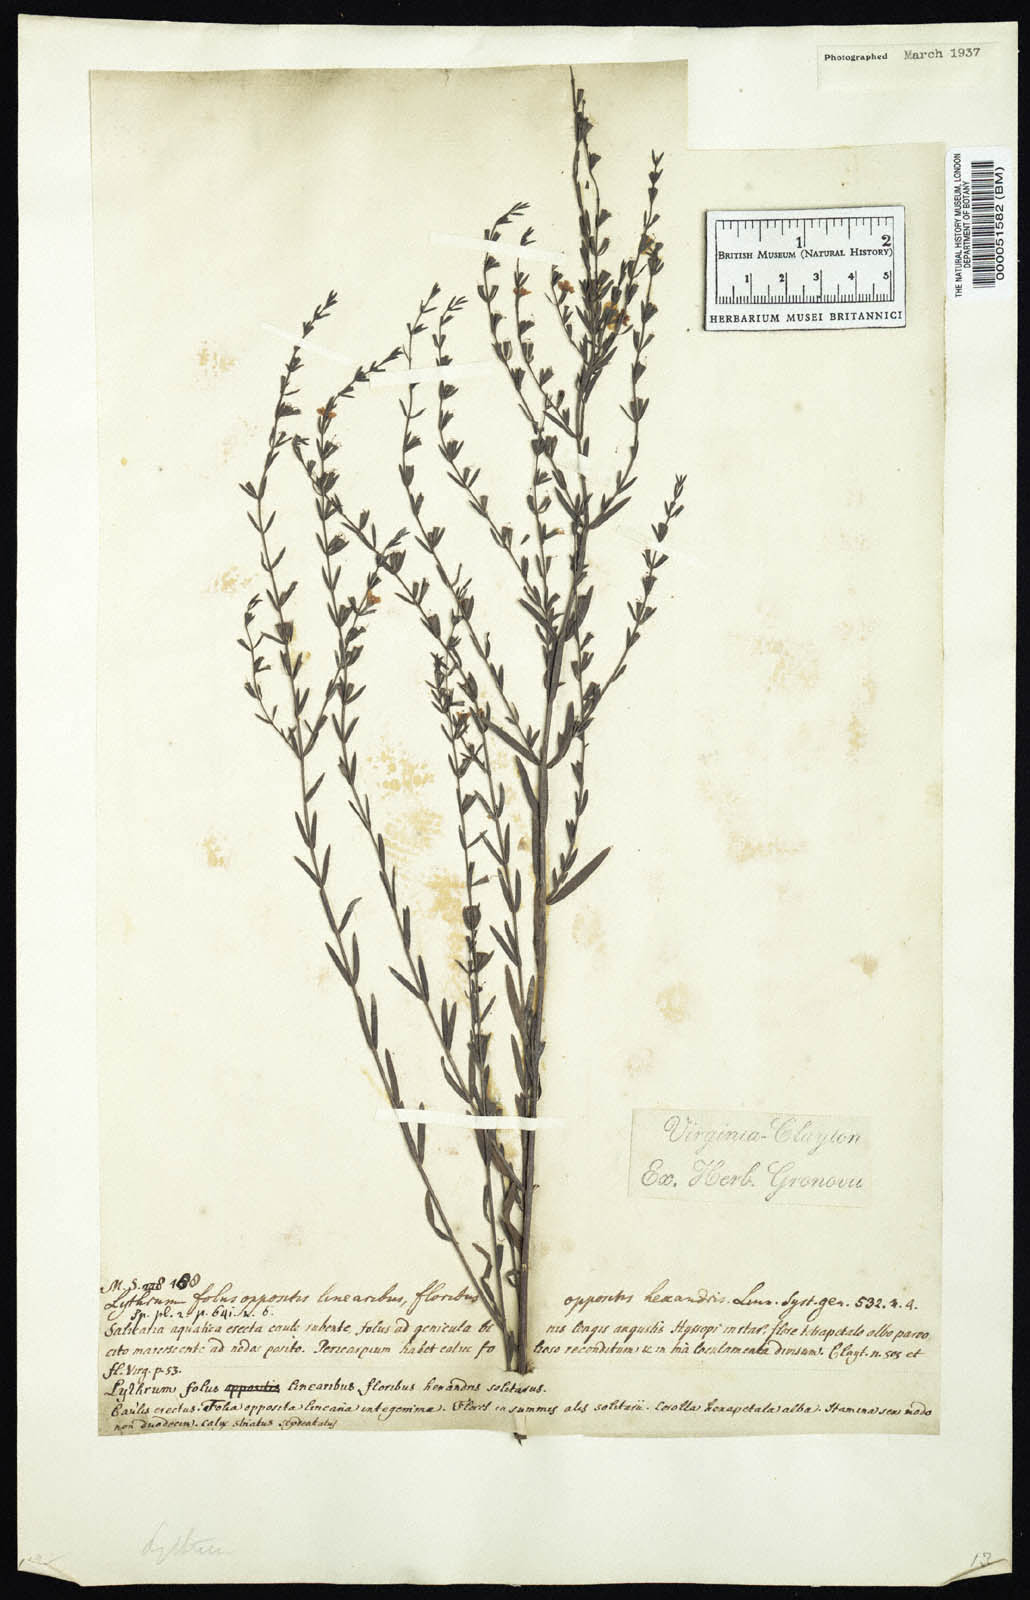 Photographed March 1937
THE NATURAL HISTORY MUSEUM, LONDON
DEPARTMENT OF BOTANY
000051582 (BM)
1 2
BRITISH MUSEUM (NATURAL HISTORY)
1 2 3 4 5
HERBARIUM MUSEI BRITANNICI
Virginia-Clayton
Ex. Herb. Gronovii
M. S.
Lythrum foliis oppositis linearibus, floribus oppositis hexandris. Linn. Syst. gen. 532. n. 4.
Sp. pl. 2. p. 641. n. 6.
Salicaria aquatica erecta caule rubente, foliis ad genicula bi nis longis angustis Hyssopi instar, flore tetrapetalo albo parvo
cito marcescente ad nodos posito. Pericarpium habet calix fo lioso reconditum & in tria loculamenta divisum. Clayt. n. 505 et
fl. Virg. p. 53.
Lythrum foliis oppositis linearibus floribus hexandris solitariis.
Caulis erectus. Folia opposita linearia integerrima. Flores in summis alis solitarii. Corolla hexapetala alba. Stamina sex modo
non duodecim. calyx striatus
Lythrum
12